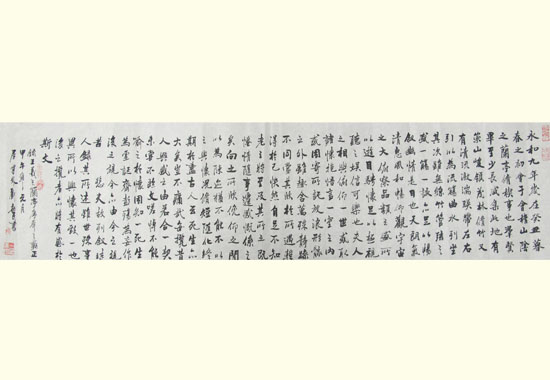 永和九年歲在癸丑暮
春之初會于會稽山陰
之蘭亭脩稧事也群賢
畢至少長咸集此地有
崇山峻領茂林脩竹又
有清流激湍暎帶左右
引以為流觴曲水列坐
其次雖無絲竹管弦之
盛一觴一詠亦足以暢
敘幽情是日也天朗氣
清惠風和暢仰觀宇宙
之大俯察品類之盛所
以遊目騁懷足以極視
聽之娛信可樂也夫人
之相與俯仰一世或取
諸懷抱悟言一室之內
或因寄所託放浪形骸
之外雖趣舍萬殊靜躁
不同當其欣於所遇暫
得於己快然自足不知
老之將至及其所之既
惓情隨事遷感慨係之
矣向之所欣俛仰之間
以為陳迹猶不能不以
之興懷況脩短隨化終
期於盡古人云死生亦
大矣豈不痛哉每攬昔
人興感之由若合一契
未嘗不臨文嗟悼不能
喻之於懷固知一死生
為虛誕齊彭殤為妄作
後之視今亦由今之視
昔悲夫故列敘時人
錄其所述雖世殊事
異所以興懷其致一也
後之攬者亦將有感於
斯文
錄王羲之蘭亭序
甲午年元月